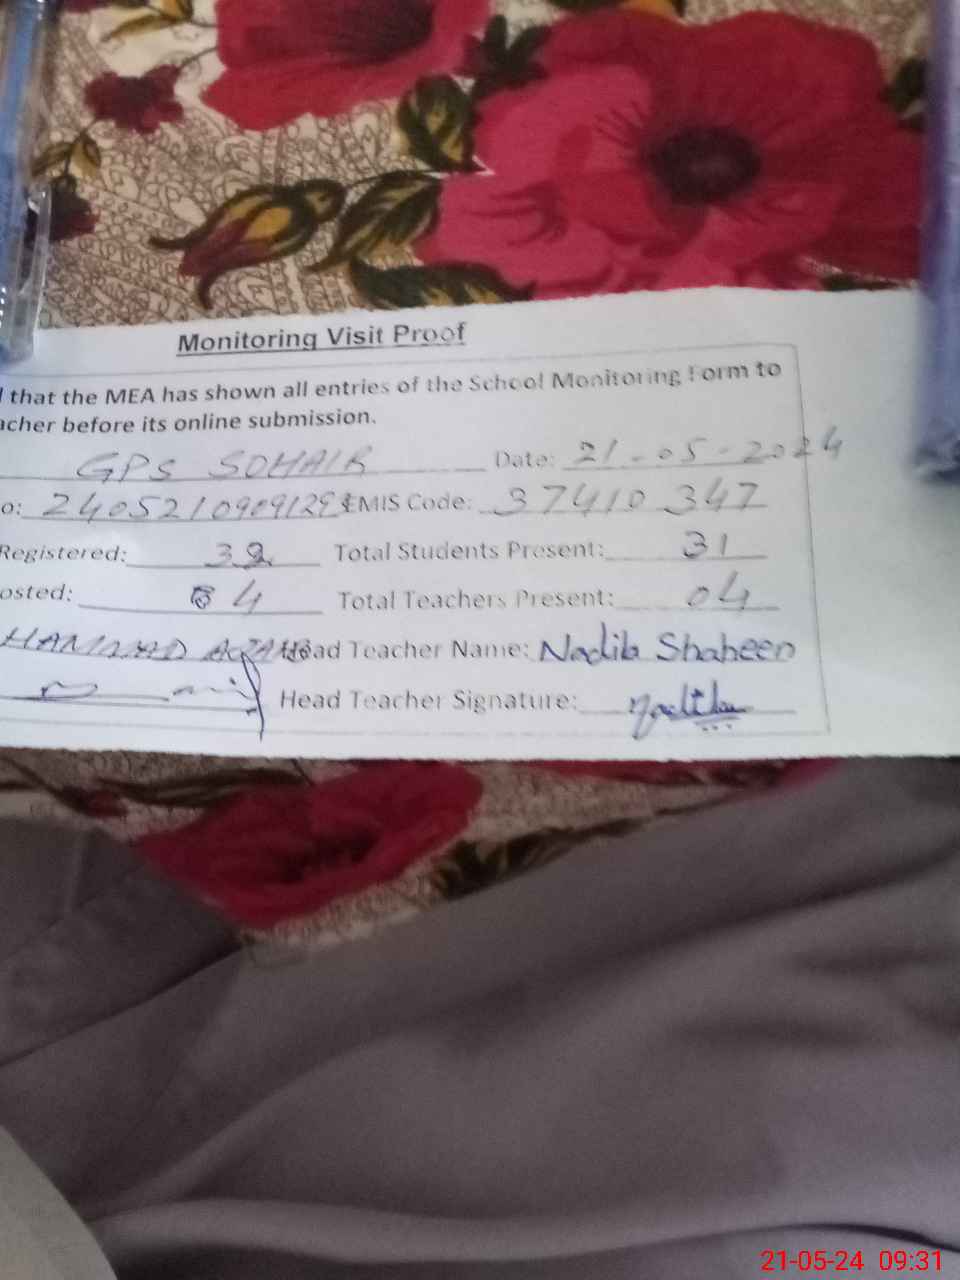 Monitoring Visit Proof
that the MEA has shown all entries of the School Monitoring Form to
acher before its online submission.
GPS SOHAIR Date: 21-05-2024
o: 2405210909129 EMIS Code: 37410347
Registered: 32 Total Students Present: 31
osted: 4 Total Teachers Present: 04
HAMMAD Head Teacher Name: Nadila Shaheen
Head Teacher Signature:
21-05-24 09:31